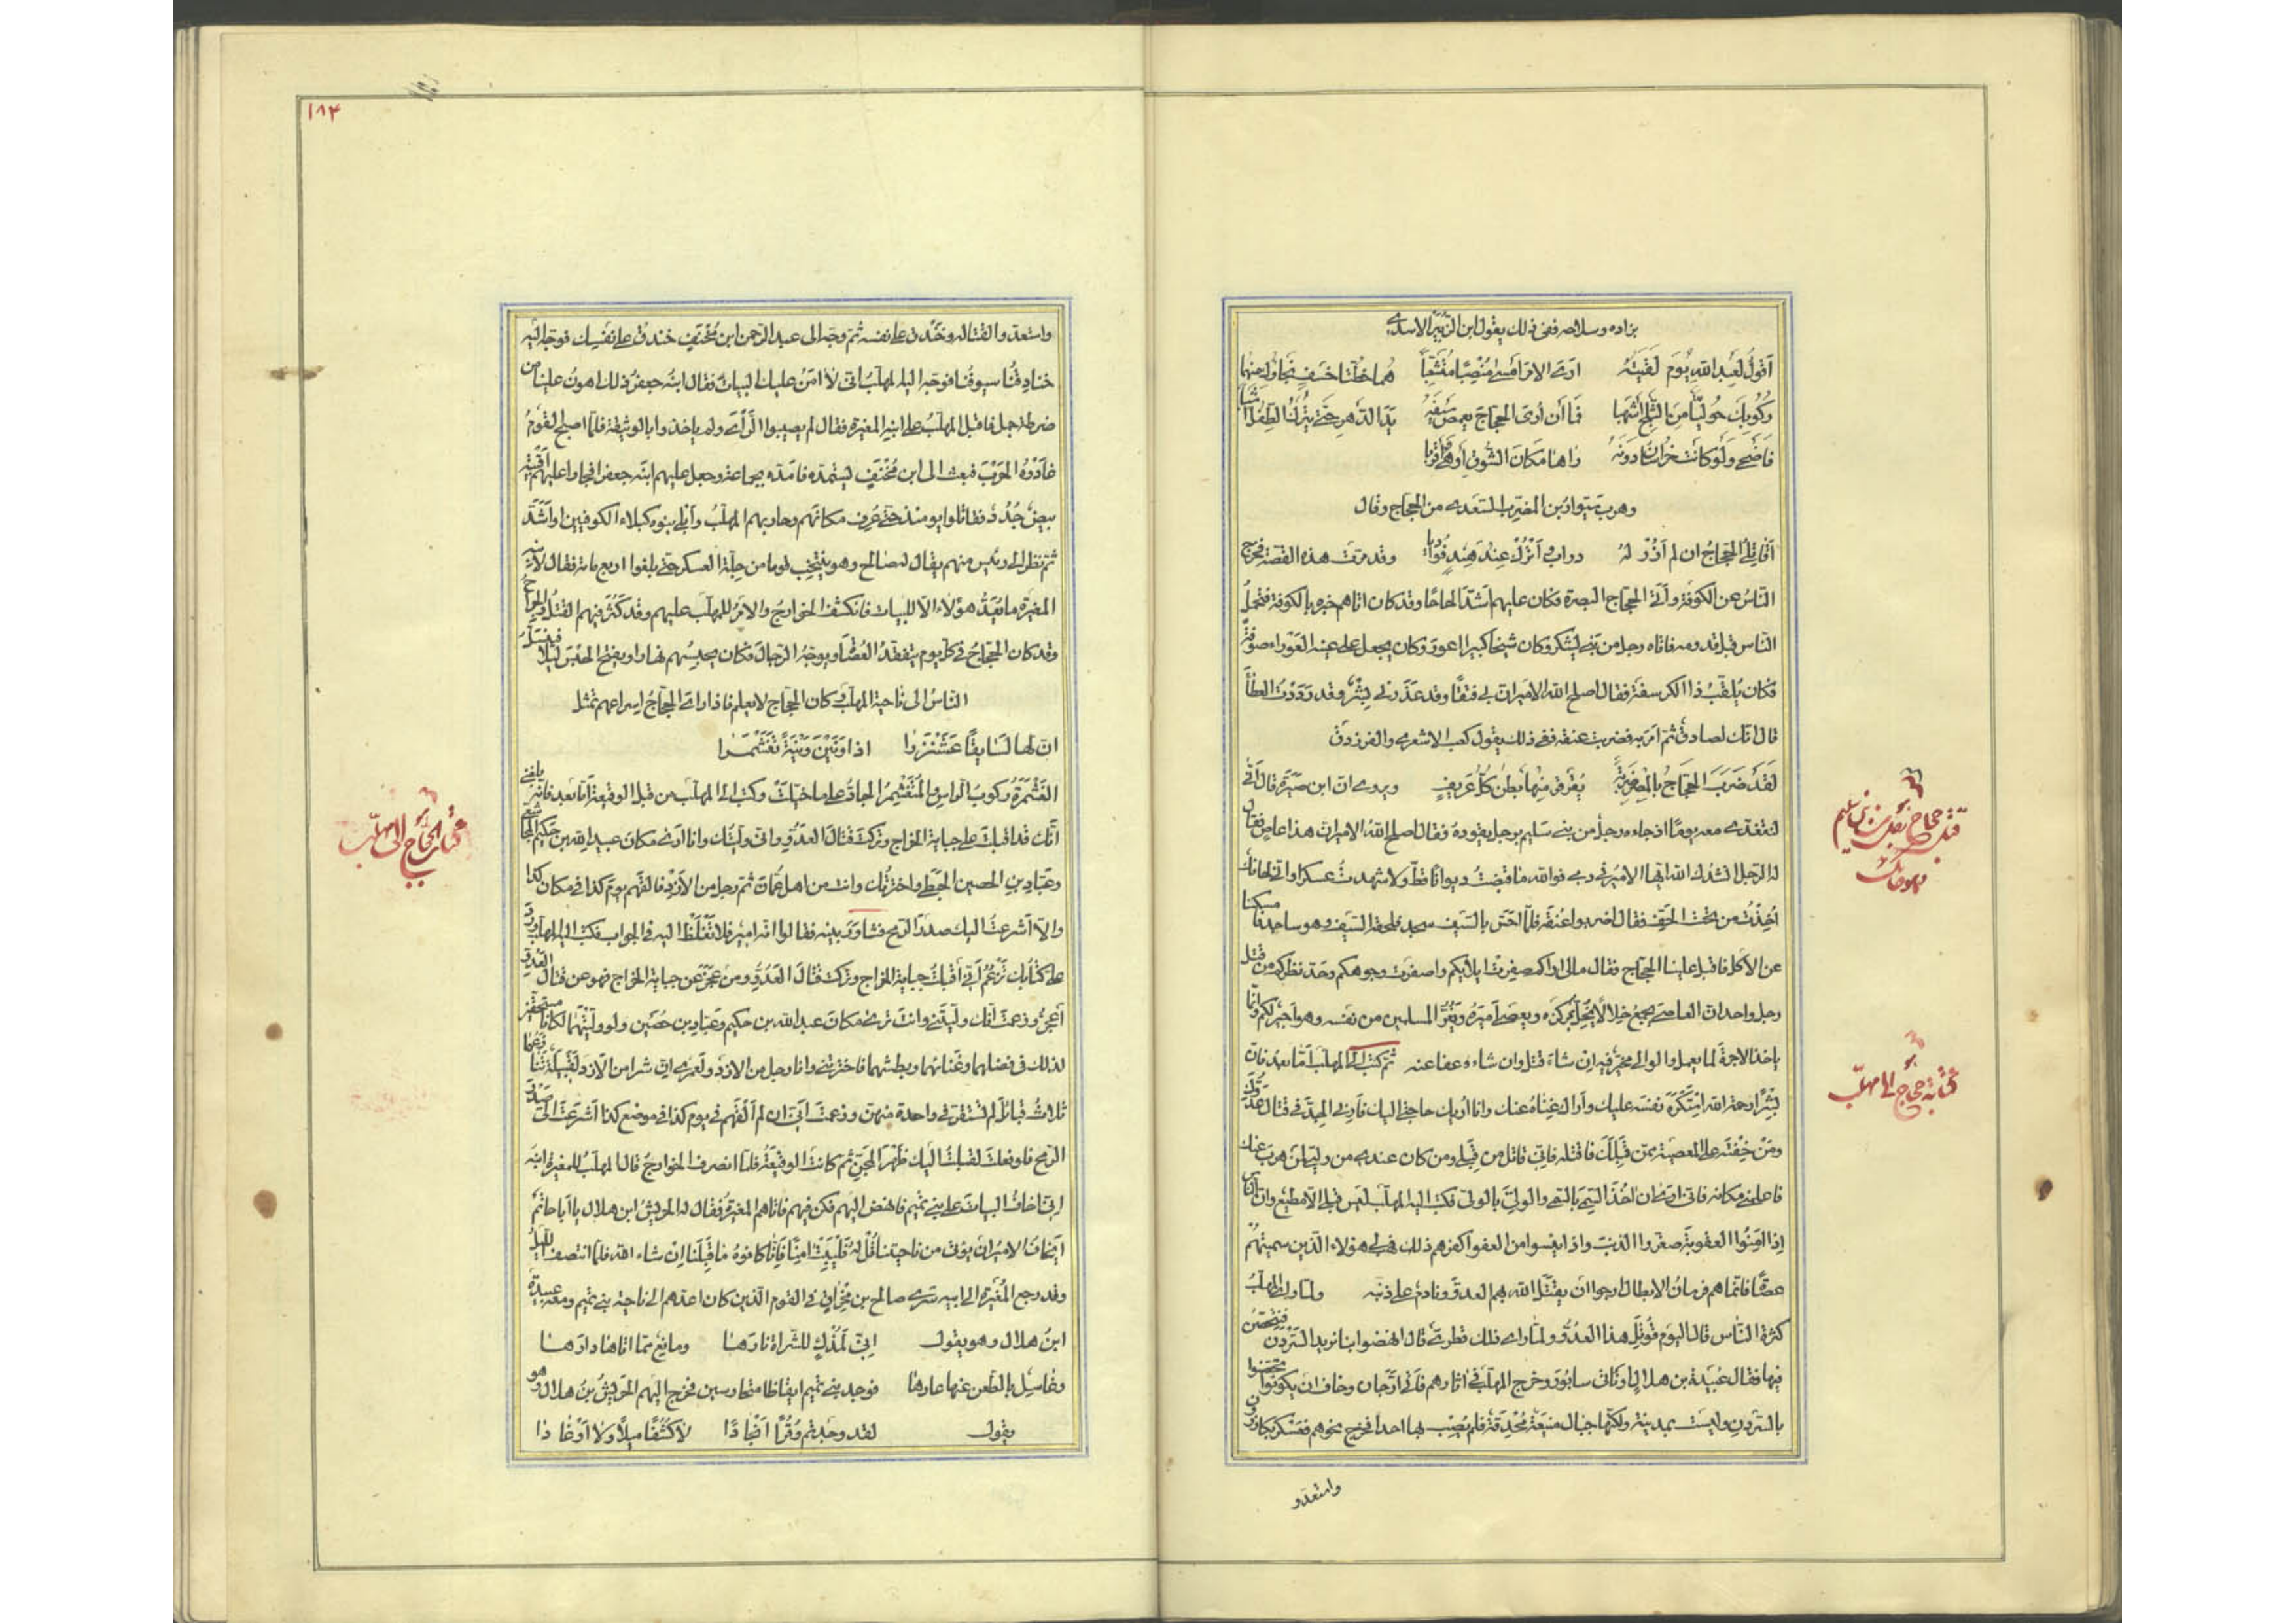 بزاده وسلاحه ففى ذلك يقول ابن الزَّبِيْر الاسدى
اَقُولُ لِعَبدِ اللّٰهِ يَوْمَ لَقيتُهُ ارَى الامرَ اَمْسٰى مُنْصِبًا مُتَشَعِّبًا هُما خطّتا خَسفٍ نَجَاؤكَ منهما
رُكُوبُكَ حَوليًّا مِنَ الثّلجِ اَشهبا فَمَا أَن أرَى الحجّاجَ يغمِضُ سَيفَهُ يَدَ الدّهرِ حتّى يَترُكَ الطِفلَ اَشيَبا
فَاَضحٰى وَلَوْ كانتْ خُراسَانُ دُونَهُ راٰها مَكانَ السُّوقِ أوْ هِىَ اَقربا
وهرب سَوّار بن المضرب السّعدى من الحجّاج وقال
اَقَاتِلى الحجّاجُ ان لم اَزُرْ لَهُ دراب واَتْرُكْ عِنْدَ هِنْدٍ فُؤادِيا وقد مرّت هذه القصّة فخرج
النّاسُ عن الكوفة واَتَى الحجّاج البصرة وكان عليهم اَشدّ الحاحًا وقد كان اتاهم خبره بالكوفة فتحمّلَ
النّاس قبل قدومه فاتاه رجل من بَنى يَشكُر وكان شيخًا كبيرا اعور وكان يجعل على عينه العَوْراء صوفة
فكان يُلقّبُ ذا الكرسفة فقال اصلح اللّٰه الامير انّ بى فتقًا وقد عَذَرَنى بِشْرٌ وقد رَدَدْتُ العَطاءَ
قال انّك لصادقٌ ثم امَرَ به فضربت عنقه ففى ذلك يقول كعب الاشعرى والفرزدق
لَقَدْ ضَرَبَ الحجّاجُ بِالمِصْرِ ضَربَةً يُقَرقِرُ مِنْها بَطْنُ كُلِّ عَريفٍ ويروى انّ ابن سبرة قال انّى
لنتغدّى معه يومًا اذ جاءه رجل من بنى سليم برجل يقوده فقال اصلح اللّٰهُ الامير انّ هذا عاصٍ فقال
له الرّجل انشُدُك اللّٰه ايّها الامير فى دمى فواللّٰه ما قبضتُ ديوانًا قطّ ولا شهدتُ عسكرا وانّى لحائك
اُخِذْتُ من تحت الحفّ فقال اضربوا عنقه فلمّا احَسَّ بالسّيف سجد فلحقه السّيف وهو ساجد فامسكنا
عن الاكل فاقبل علينا الحجّاج فقال مالى اراكم صفِرتْ ايديكم واصفرّت وجوهكم وحدّ نظركم من قتل
رجل واحد انّ العاصى يجمع خلالًا يُخِلُّ بمركزه ويعصى اَميرَهُ ويَغُرُّ المسلمين من نفسه وهو اجيرٌ لكم وانّما
ياخذ الاجرةَ لما يعمل والوالى مخيّر فيه ان شاءَ قتل وان شاءَ عفا عنه ثمّ كتب الى المهلّب امّا بعد فانّ
بِشْرًا رحمه اللّٰه استَكْرَهَ نفسَه عليك واَراك غِنَاهُ عنك وانا اُريك حاجتى اليك فاَرِنى الجِدّ فى قتال عدوّك
ومَنْ خِفْتَه على المعصية ممّن قِبَلَكَ فاقتله فانّى قاتل من قِبَلى ومن كان عندى من ولىّ لمن هرب عنك
فاعلمنى مكانه فانّى ارى ان اٰخُذَ السّمِىَّ بالسّمِىِّ والولِىَّ بالولىّ فكتب اليه المهلّب ليس قِبلى الّا مطيعٌ وانّ النّاس
اِذا اَمِنُوا العقوبةَ صغّروا الذّنبَ واذا ايِسوا من العفو اكفرهم ذلك فهَب لى هؤلاء الّذين سميّتَهُم
عُصاةً فانّما هم فُرسانُ الابطال ارجوا ان يقتُلَ اللّٰه بهم العدوَّ ونادمٌ على ذنبه ولمّا راى المهلّبُ
كثرةَ النّاس قال اليَوم قُوتِلَ هذا العدُوُّ ولمّا راى ذلك قطرىّ قال انهضوا بنا نريد السَّرْدَن فنتحصّنُ
فيها فقال عُبيدة بن هلال او ناتى سابُورَ وخرج المهلّب فى اٰثارهم فاَتَى ارّجان وخاف ان يكونوا تحصّنوا
بالسّردن وليست بمدينة ولكنّها جبال منيعة مُحْدِقة فلم يُصِب بها احدا فخرج نحوهم فعَسْكَرَ بكازرون
واستعدّو
قتل حجاج يكى از بنى سليم
كتابة حجاج الى مهلّب
١٨٣
واستعدّوا لقتاله وخَنْدَق على نفسه ثمّ وجّه الى عبد الرّحمن ابن مُخْنَفٍ خندق على نفسك فوجّه اليه
خنادِقُنا سيوفُنا فوجّه اليه المهلّبُ انّى لا اٰمَنُ عليك البياتَ فقال ابنُه جعفرٌ ذلك اهونُ علينا من
ضرطة جمل فاقبل المهلّبُ على ابنِه المغيرة فقال لم يصيبوا الرَّأىَ ولم ياخذوا بالوثيقة فلمّا اصبح القومُ
غادَوْهُ الحَرْبَ فبعث الى ابن مُخْنَفٍ يستمدّه فامدّه بجماعة وجعل عليهم ابنَه جعفرا فجاوا عليهم اَقبيةٌ
بيضٌ جُدُدٌ فقاتلوا يومئذ حتّى عُرِف مكانُهم وحاربهم المهلّبُ واَبلَى بنوه كبلاء الكوفيين او اَشَدَّ
ثم نظر الى رئيس منهم يقال له صالح وهو ينتخب قوما من جِلّة العسكر حتّى بلغوا اربع مائة فقال لابنه
المغيرة ما يَعُدُّ هؤلاء الّا للبيات فانكشف الخوارجُ والامرُ للمهلّب عليهم وقد كَثُرَ فيهم القتلُ والجِراحُ
وقد كان الحجّاجُ فى كلّ يوم يتفقّدُ العُصاةَ ويوجّهُ الرّجالَ فكان يحبِسُهم نهارا ويفتح الحبسَ ليلًا فيَنسَلُّ
النّاسُ الى ناحية المهلّب وكان الحجّاج لا يعلم فاذا راى الحجّاجُ اِسراعهم تمثل
انّ لها لَسَايِقًا عَشَنْزَرا اذا وَنَيْنَ وَنْيَةً تَغَشْمَرا
الغَشْمَرَةُ ركوبُ الراس والمُتَغَشْمِرُ الجادّ على ما خيّلَتْ وكتب الى المهلّب من قبل الوقيعة امّا بعد فانّه بلغنى
انّك قد اقبلتَ على جباية الخراج وتركتَ قتالَ العدوّ وانّى ولّيتُك وانا ارَى مكانَ عبد اللّٰه بن حَكيم المجاشعى
وعبّاد بن الحصين الحَبَطى واخترتُك وانت من اهل عُمانَ ثمّ رجل من الاَزدِ فالْقَهم يومَ كذا فى مكان كذا
والّا اَشرعتُ اليك صدرَ الرّمح فشاوَرَ بنيه فقالوا انّه امير فلا تَغْلُظْ اليه فى الجواب فكتب اليه المهلّب وَرَد
علىّ كتابُك تَزْعُمُ اَنّى اَقبلتُ جباية الخراج وتركت قتالَ العَدُوِّ ومن عَجَزَ عن جباية الخراج فهو عن قتال العَدُوّ
اَعجَزُ وزعمتَ انّك ولّيتَنى وانتَ ترى مكانَ عبد اللّٰه بن حكيم وعَبّادِ بن حُصَين ولو ولّيتَهُما لكانا مستحِقّين
لذلك فى فضلهما وغَنائهما وبطشهما فاخترتنى وانا رجل من الازد ولَعمرى انّ شرا من الاَزدِ لَقَبيلَةٌ تَنازَعَها
ثلاثُ قبائلَ لم تستقرّ فى واحدة منهنّ وزعمتَ اَنّى ان لم اَلْقَهُم فى يوم كذا فى موضع كذا اَشرَعْتَ اِلَىَّ صَدْرَ
الرّمح فلو فعلتَ لقلبتُ اليك ظَهْرَ المِجَنِّ ثم كانت الوقيعَةُ فلمّا انصرف الخوارجُ قال المهلّبُ للمغيرة ابنِه
انّى اخافُ البياتَ على بنى تَميم فانهض اليهم فكن فيهم فاتاهم المغيرةُ فقال له الحَريشُ ابن هلال يا اَبا حاتم
اَيَخافُ الاميرُ ان يؤتى من ناحيتنا قُلْ لهُ فَليَبِتْ اٰمِنًا فَاِنّا كافوهُ ما قِبَلَنا اِنْ شاء اللّٰه فلمّا انتصف اللّيلُ
وقد رجع المُغيرة الى ابيه سَرَى صالح بن مِخْراقٍ فى القوم الّذين كان اعدّهم الى ناحية بنى تميم ومعه عبيدةُ
ابنُ هلال وهو يقول اِنّى لَمُذْكٍ للشُّراةِ نارَها ومانِعٌ ممّا اَتاها دارَها
وغاسِل بالطّعن عنها عارها فوجد بنى تميم ايقاظا متحارسين فخرج اليهم الحَريشُ بنُ هلال وهو
يقول لقد وجدتم وُقُرًا اَنْجادًا لا كُشُفًا مِيلًا ولا اَوْغادًا
كتاب حجّاج الى مهلّب